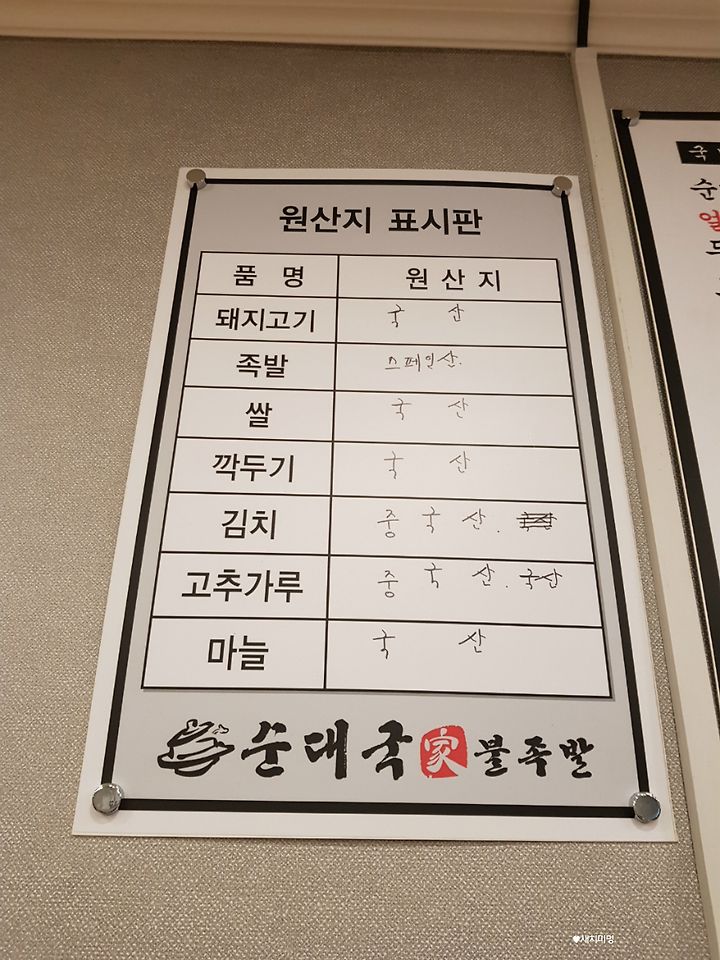 원산지 표시판
품 명 원 산 지
돼지고기 국 산
족발 스페인산.
쌀 국 산
깍두기 국 산
김치 중 국 산.
고추가루 중 국 산. 국산
마늘 국 산
순대국家불족발
국
순
얼
♥새치미밍